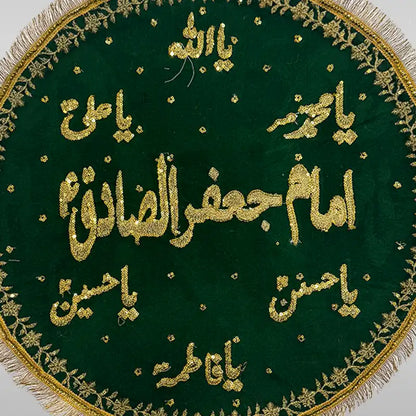 یا اللہ
یا محمد یا علیؑ
امام جعفر الصادقؑ
یا حسنؑ یا حسینؑ
یا فاطمہ